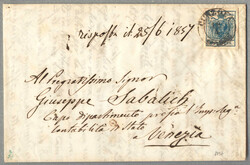 risposto il 25/6 1857
Al Pregiatissimo Signor
Giuseppe Sabalich
Capo dipartimento presso l'
Contabilità di Stato
a Venezia